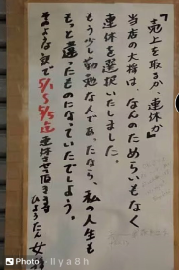 『売上を取るか、連休か』
当店の大将は、なんのためらいもなく
連休を選択いたしました。
もう少し勤勉な人であったなら、私の人生も
もっと違ったものになっていたでしょう。
そのような訳で5/1〜5/5迄連休させて頂きます
ひょうたん 女将
Photo
Ilya8h